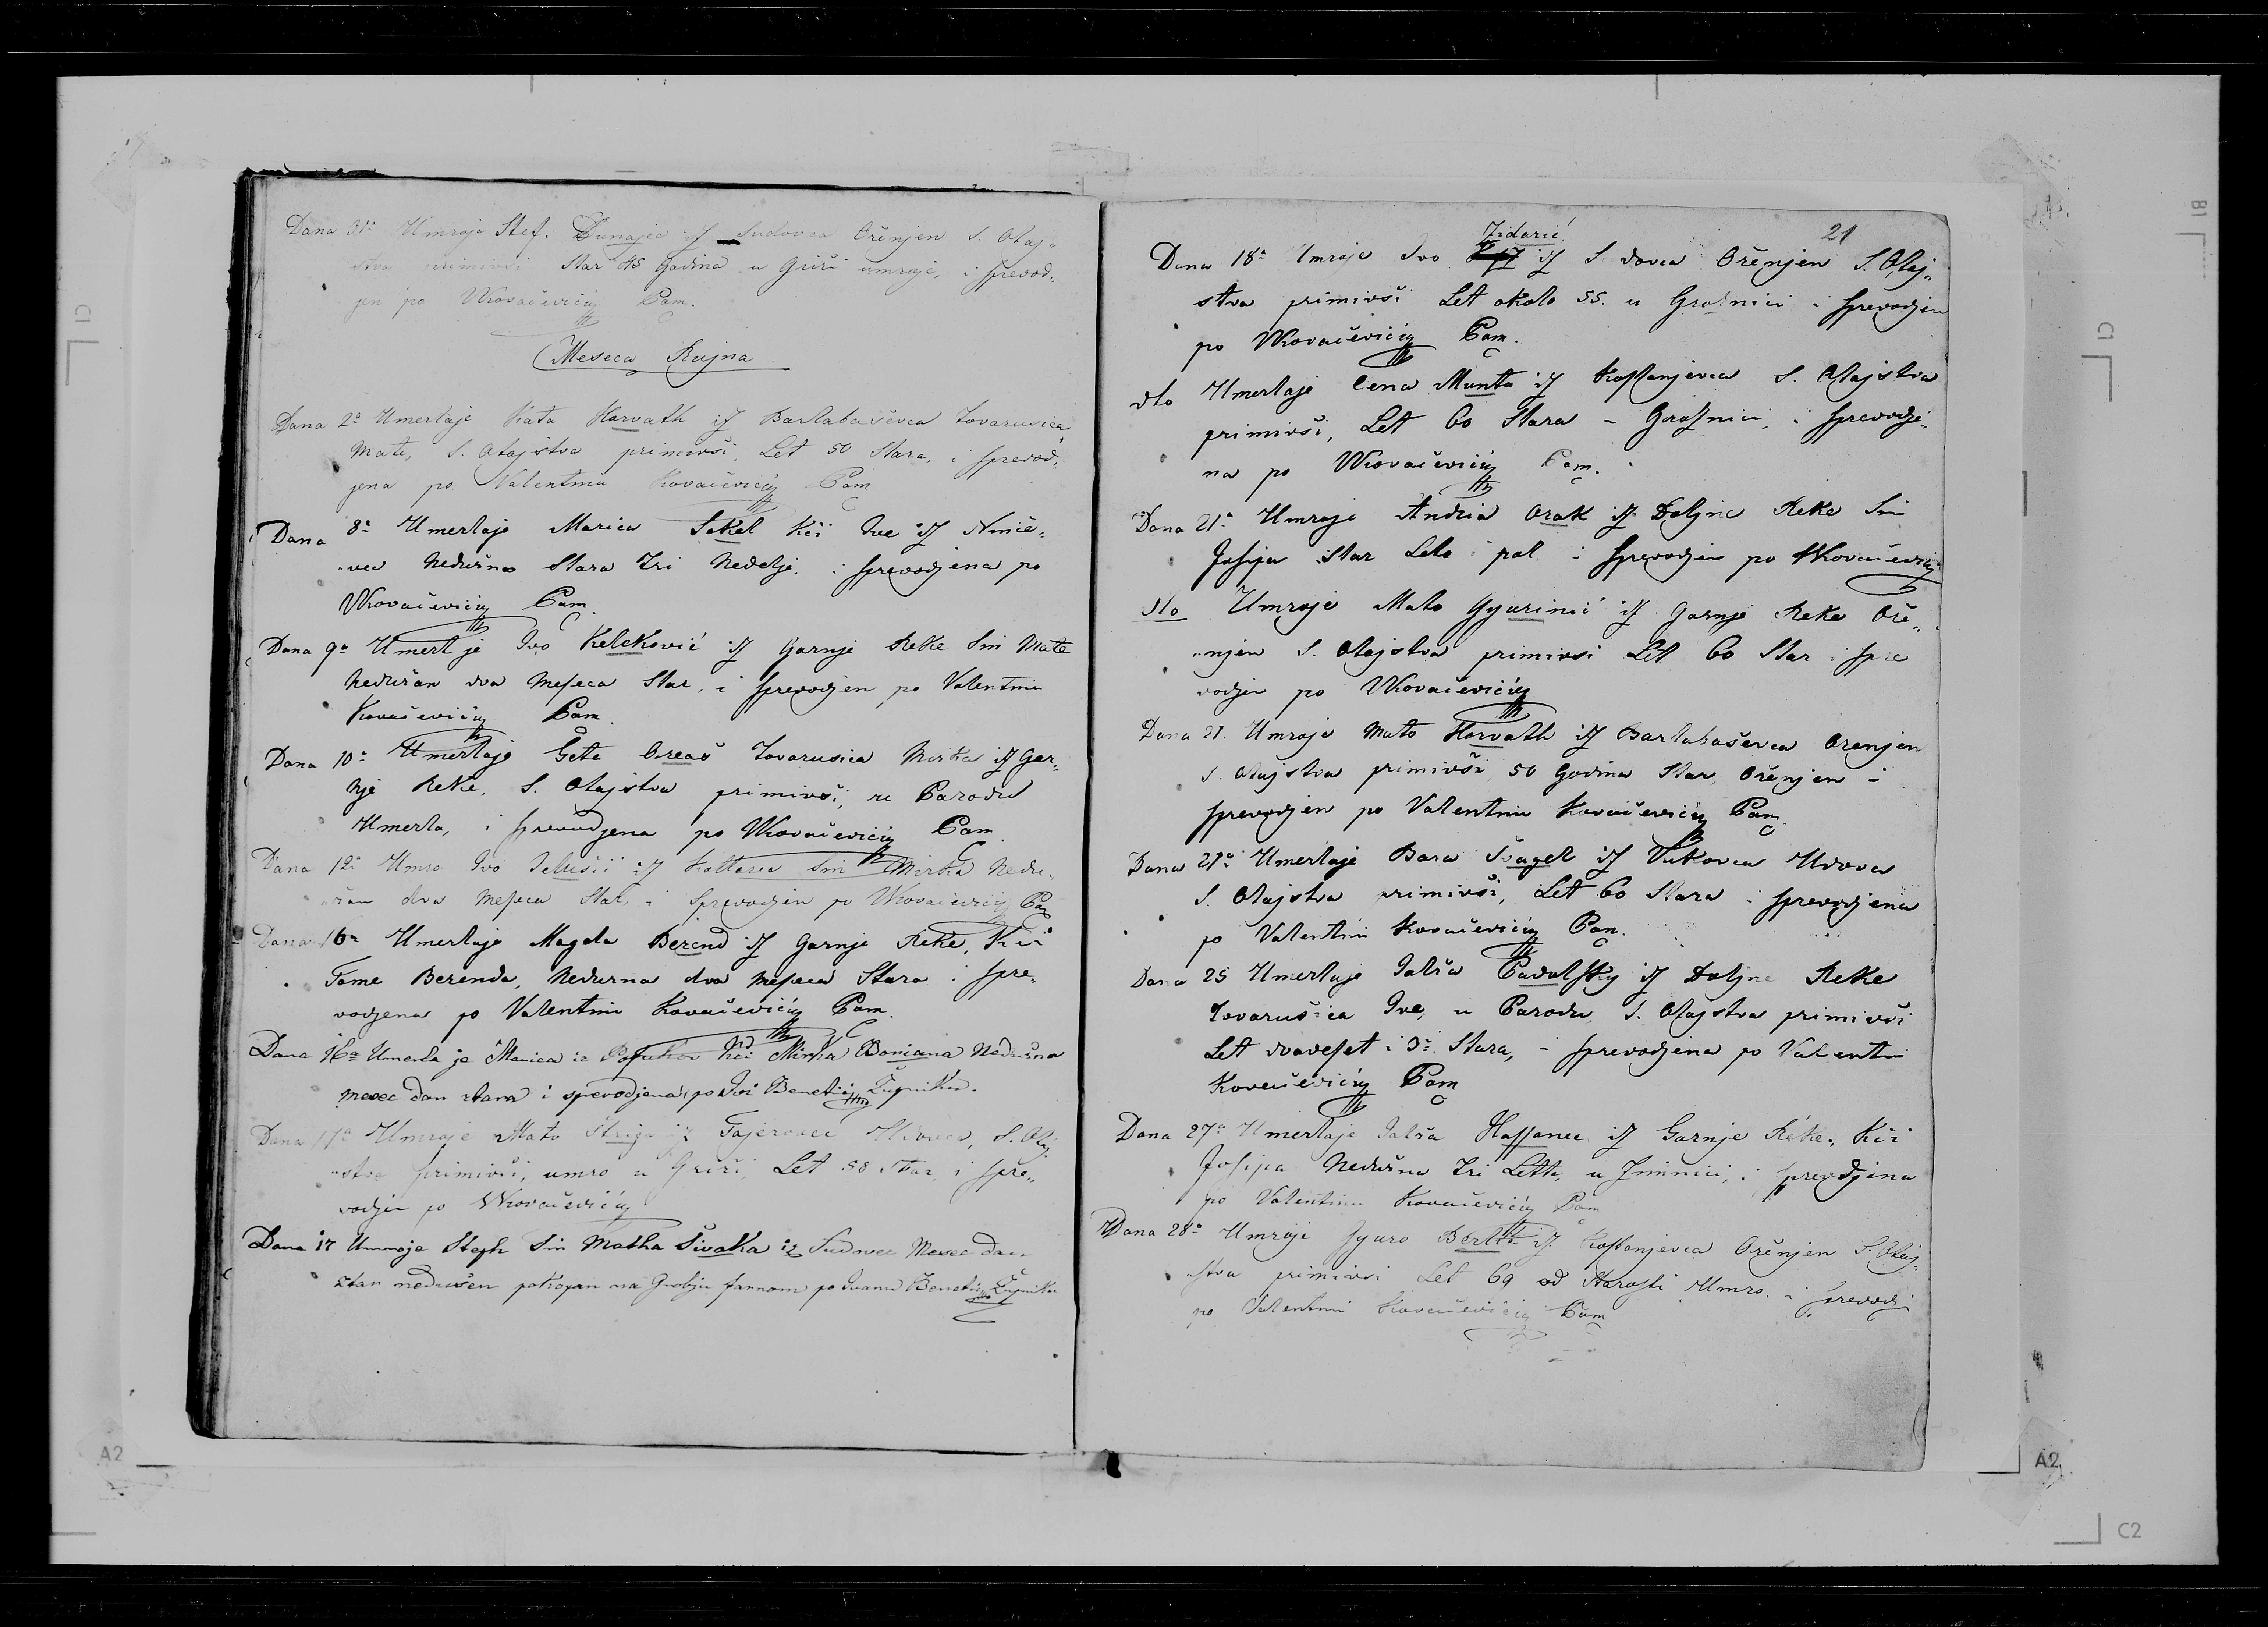 Dana 31ª Umroje Stef. Dunajec iz Sudovca Oženjen S. Otaj„
stva primivši star 45 Godina u Griži umroje, i sprevod„
jen po VKovačeviću Cam.
Meseca Rujna
Dana 2ª Umerlaje Kata Horvath iz Barlabaševca Tovarusica
Mate, S. Otajstva primivši, Let 50 Stara, i sprevod„
jena po Valentinu Kovačeviću Cam
Dana 8ª Umerlaje Marica Sokel Kči Ive iz
vca Nedužna Stara Tri Nedelje, i sprevodjena po
VKovačeviću Cam.
Dana 9ª Umerl je Ivo Keleković iz Garnje Reke Sin Mate
Nedužan dva Meseca Star, i sprevodjen po Valentinu
Kovačeviću Cam.
Dana 10ª Umerlaje Geta Oreač Tovarusica Mirka iz Gar„
nje Reke, S. Otajstva primivši, u Parodu
Umerla, i sprevodjena po VKovačeviću Cam.
Dana 12ª Umro Ivo Jelušić iz Kottarca Sin Mirka Nedu„
žan dva Meseca Star, i Sprevodjen po VKovačeviću Cam
Dana 16ª Umerlaje Magda Berend iz Garnje Reke, Kči
Tome Berenda, Nedužna dva Meseca Stara i spre„
vodjena po Valentinu Kovačeviću Cam.
Dana 16ª Umerla je Manica iz Kči Mirka Boniana Nedužna
mesec dan stara i sprevodjena po Ivi Benetiću Župniku.
Dana 17ª Umroje Mato Striga iz Tajerovec Udovec, S. Otaj
stva primivši, umro u Griži, Let 58 Star, i spre„
vodjen po VKovačeviću
Dana 17 Umroje Steph Sin Matha Sivaka iz Sudovec Mesec dan
star nedužen pokopan na Groblju farnom po Ivanu Benetiću Župniku
21
Zidarić
Dana 18ª Umroje Ivo iz Sudovca Oženjen S. Otaj„
stva primivši Let okolo 55. u Groznici i sprevodjen
po VKovačeviću Cam.
dto Umerlaje Cena Munta iz Kostanjevca S. Otajstva
primivši, Let 60 Stara u Groznici, i sprevodje„
na po VKovačeviću Cam.
Dana 21ª Umroje Andria Orak iz Doljne Reke Sin
Josipa Star Leto i pol i Sprevodjen po VKovačeviću
dto Umroje Mato Gyurinić iz Garnje Reke Ože„
„njen S. Otajstva primivši Let 60 Star i spre
vodjen po VKovačeviću
Dana 21. Umroje Mato Horvath iz Barlabaševca Oženjen
S. Otajstva primivši, 50 Godina Star, Oženjen i
sprevodjen po Valentinu Kovačeviću Cam.
Dana 21ª Umerlaje Bara Švagel iz Vukovca Udova
S. Otajstva primivši, Let 60 Stara i sprevodjena
po Valentin Kovačeviću Cam.
Dana 25 Umerlaje Jalža Pavolsky iz Doljne Reke
Tovarušica Ive, u Parodu, S. Otajstva primivši
Let dvadeset i 3ª Stara, i sprevodjena po Valentin
Kovačeviću Cam
Dana 27ª Umerlaje Jalža Hassanec iz Garnje Reke, Kči
Josipa Nedužna Tri Leth, u Zimnici, i sprevodjena
po Valentinu Kovačeviću Cam
Dana 28ª Umroje Gyuro iz Kostanjevca Oženjen S. Otaj„
stva primivsi Let 69 od Starosti Umro. i sprevodj
po Valentinu Kovačeviću Cam
A2
A2
C1
C1
B1
C2